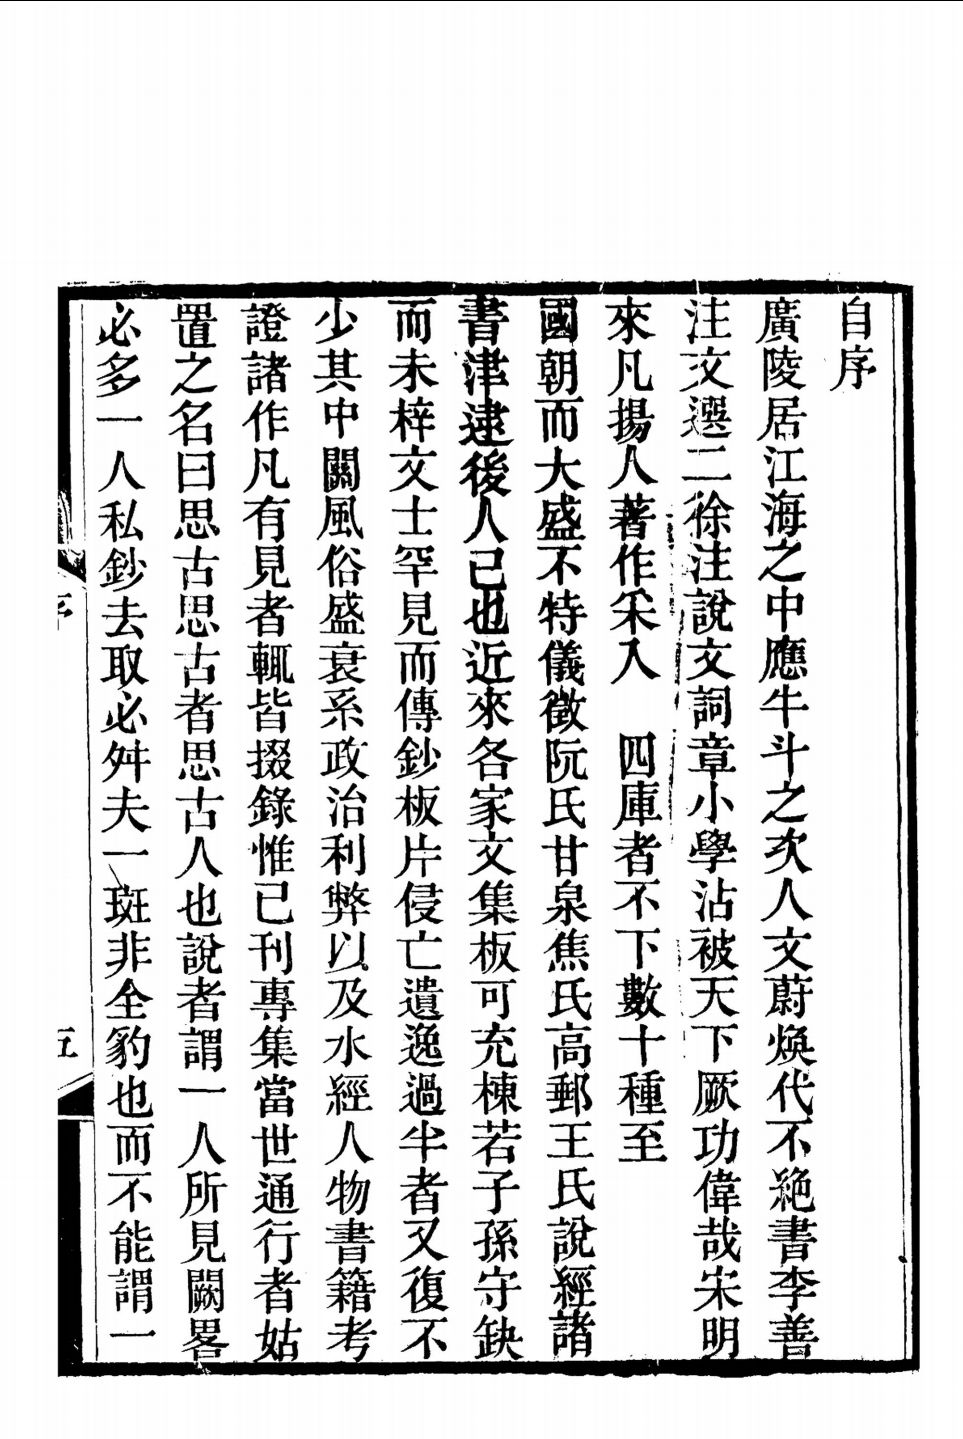 自序
廣陵居江海之中應牛斗之次人文蔚煥代不絶書李善
注文選二徐注說文詞章小學沾被天下厥功偉哉宋明
來凡揚人著作采入　四庫者不下數十種至
國朝而大盛不特儀徵阮氏甘泉焦氏高郵王氏說經諸
書津逮後人已也近來各家文集板可充棟若子孫守缺
而未梓文士罕見而傳鈔板片侵亡遺逸過半者又復不
少其中關風俗盛衰系政治利弊以及水經人物書籍考
證諸作凡有見者輒皆掇錄惟已刊專集當世通行者姑
置之名曰思古思古者思古人也說者謂一人所見闕畧
必多一人私鈔去取必舛夫一斑非全豹也而不能謂一
序
五